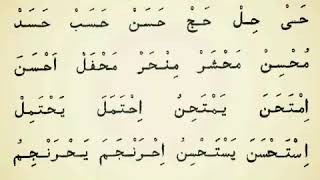 حَىْ حِلْ حَجْ حَسَنْ حَسَبْ حَسَدْ
مُحْسِنْ مَحْشَرْ مِنْحَرْ مَحْفَلْ اَحْسَنَ
اِمْتَحَنَ يَمْتَحِنُ اِحْتَمَلَ يَحْتَمِلْ
اِسْتَحْسَنَ يَسْتَحْسِنُ اِحْرَنْجَمَ يَحْرَنْجِمُ